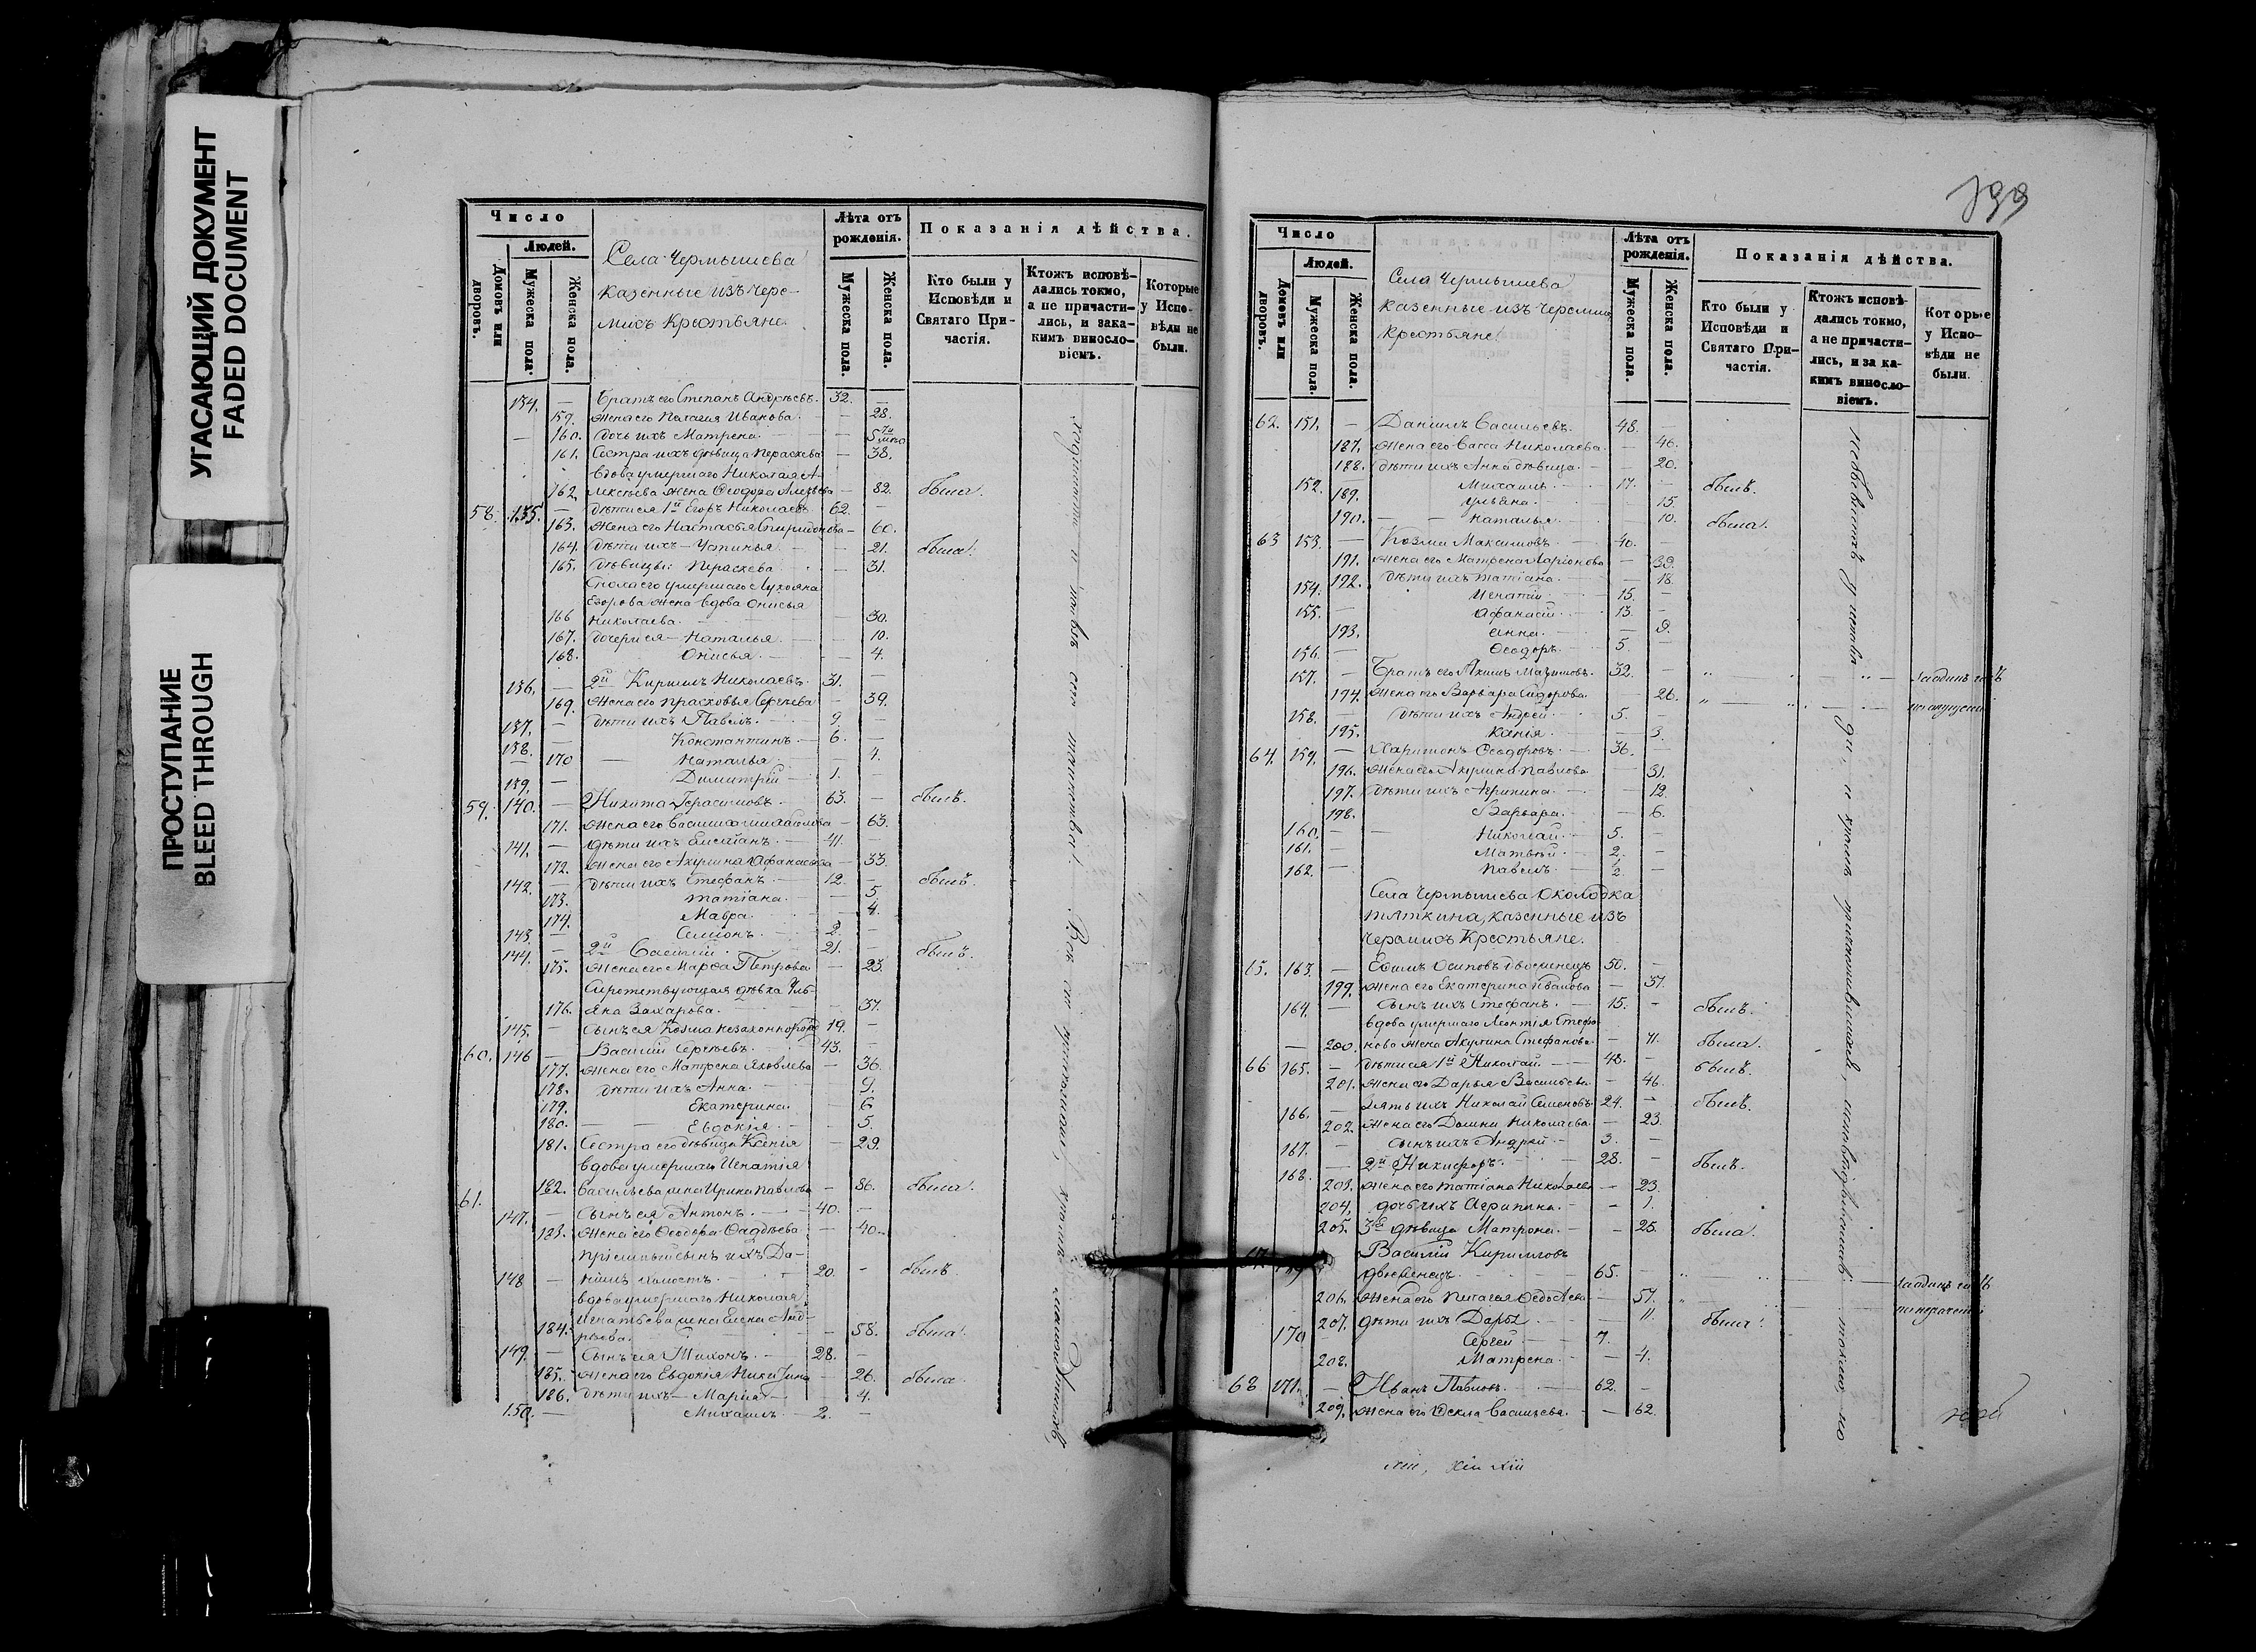 УГАСАЮЩИЙ ДОКУМЕНТ
FADED DOCUMENT
ПРОСТУПАНИЕ
BLEED THROUGH
Число
Людей.
Домовъ или дворовъ.
Мужеска пола.
Женска пола.
Села Чермышева
казенные изъ чере-
мисъ Крестьяне
Лѣта отъ рожденія.
Мужеска пола.
Женска пола.
Показанія дѣйства.
Кто были у Исповѣди и Святаго При-частія.
Ктожъ исповѣ-дались токмо, а не причасти-лись, и зака-кимъ винослo-віемъ.
Которые у Испо-вѣди не были.
134. — Братъ его Степанъ Андрѣевъ. 32. —
159. Жена его Пелагия Иванова. — 28.
— 160. Дочь ихъ Матрена. —
161. Сестра ихъ дѣвица Параскева — 38.
вдова умершаго Николая А-
162. лексѣева жена Ѳеодора — 82. была.
58. 135. — дѣти ея 1й Егоръ Николаевъ 62. —
163. Жена его Настасья Спиридонова — 60.
164. дѣти ихъ — Устинья — 21. была.
165. дѣвицы: Параскева — 31.
Егорова жена вдова Онисья
166 Николаева. — 30.
167. дочери ея — Наталья. — 10.
168. Онисья. — 4.
136. — 2й Кирилъ Николаевъ. 31. —
169. Жена его Прасковья Сергѣева — 39.
137. — дѣти ихъ Павелъ. 9. —
138. — Константинъ. 6. —
170 — Наталья — 4.
139. — Димитрій 1. —
59. 140. — Никита Герасимовъ. 63. — былъ.
171. Жена его Василиса — 63.
141. — дѣти ихъ 41. —
172. Жена его Акулина Афанасьева — 33.
142. — дѣти ихъ Стефанъ. 12. — былъ.
173. Татіана. — 5
174. Мавра. — 4.
143. — Семіонъ. 2. —
144. — 2й Василій. 21. — былъ.
175. Жена его Марѳа Петрова — 23.
Сиротствующая дѣвка Уль-
176. яна Захарова. — 37.
145. — Сынъ ея Козма 19. —
60. 146 — Василій Сергѣевъ. 43. —
177. Жена его Матрена Яковлева — 36.
178. дѣти ихъ Анна. — 9.
179. Екатерина. — 6
180. — Евдокія. — 5.
181. Сестра его дѣвица Ксенія — 29.
вдова умершаго Игнатія
182. Васильева жена Ирина Павлова — 86. была.
61. 147. — Сынъ ея Антонъ. 40. —
183. Жена его Ѳеодора Ѳаддѣева — 40.
Пріемный сынъ ихъ Да-
148. — ніилъ холостъ. 20. — былъ.
вдова умершаго Николая
Игнатьева жена Елена Анд-
184. рѣева. — 58. была.
149. — Сынъ ея Тихонъ. 28. —
185. Жена его Евдокія Никитина — 26. была.
186. дѣти ихъ — Марія — 4.
150. — Михаилъ. 2. —
199
Число
Людей.
Домовъ или дворовъ.
Мужеска пола.
Женска пола.
Села Чермышева
казенные изъ черемисъ
Крестьяне
Лѣта отъ рожденія.
Мужеска пола.
Женска пола.
Показанія дѣйства.
Кто были у Исповѣди и Святаго При-частія.
Ктожъ исповѣ-дались токмо, а не причасти-лись, и за ка-кимъ винослo-віемъ.
Которые у Испо-вѣди не были.
62. 151. — Даніилъ Васильевъ. 48. —
187. Жена его Васса Николаева — 46.
188. дѣти ихъ Анна дѣвица. — 20.
152. — Михаилъ. 17. — былъ.
189. Ульяна. — 15.
190. — Наталья. — 10. была.
63 153. — Козма Максимовъ. 40. —
191. Жена его Матрена Ларіонова — 39.
192. дѣти ихъ Татіана. — 18.
154. Игнатій 15. —
155. — Афанасій. 13. —
193. Анна. — 9.
156. — Ѳеодоръ. 5. —
157. — Братъ его Акимъ Максимовъ. 32. —
194. Жена его Варвара Сидорова — 26.
158. — дѣти ихъ Андрей. 5. —
195. Ксенія. — 3.
64. 159. — Харитонъ Ѳеодоровъ. 36. —
196. Жена его Акулина Павлова — 31.
197. дѣти ихъ Агрипина. — 12.
198. Варвара. — 6.
160. — Николай. 5. —
161. — Матвѣй. 2. —
162. — Павелъ. ½. —
Села Чермышева Околодка
Тяткина, казенные изъ
черемисъ Крестьяне.
65. 163. — Ефимъ Осиповъ двоеженецъ 50. —
199. Жена его Екатерина Иванова — 37.
164. — Сынъ ихъ Стефанъ. 15. — былъ.
вдова умершаго Леонтія Стефа-
— 200. нова жена Акулина Стефанова — 71. была.
66 165. — дѣти ея 1й Николай. 48. — былъ.
201. Жена его Дарья Васильева — 46.
166. — Зять ихъ Николай Семеновъ. 24. — былъ.
202. Жена его Домна Николаева. — 23.
167. — Сынъ ихъ Андрей. 3. —
168. — 2й Никифоръ. 28. — былъ.
203. Жена его Татіана Николаева — 23.
204. дочь ихъ Агрипина. — 1.
205. 3я дѣвица Матрона. — 25. была.
Василій Кирилловъ
двоеженецъ. 65. —
206. Жена его Пелагея — 57.
207. дѣти ихъ Дарья — 11. была.
170 — Сергей 7. —
208. Матрена. — 4.
68 171. — Иванъ Павловъ. 62. —
209. Жена его Ѳекла Васильева. — 62.